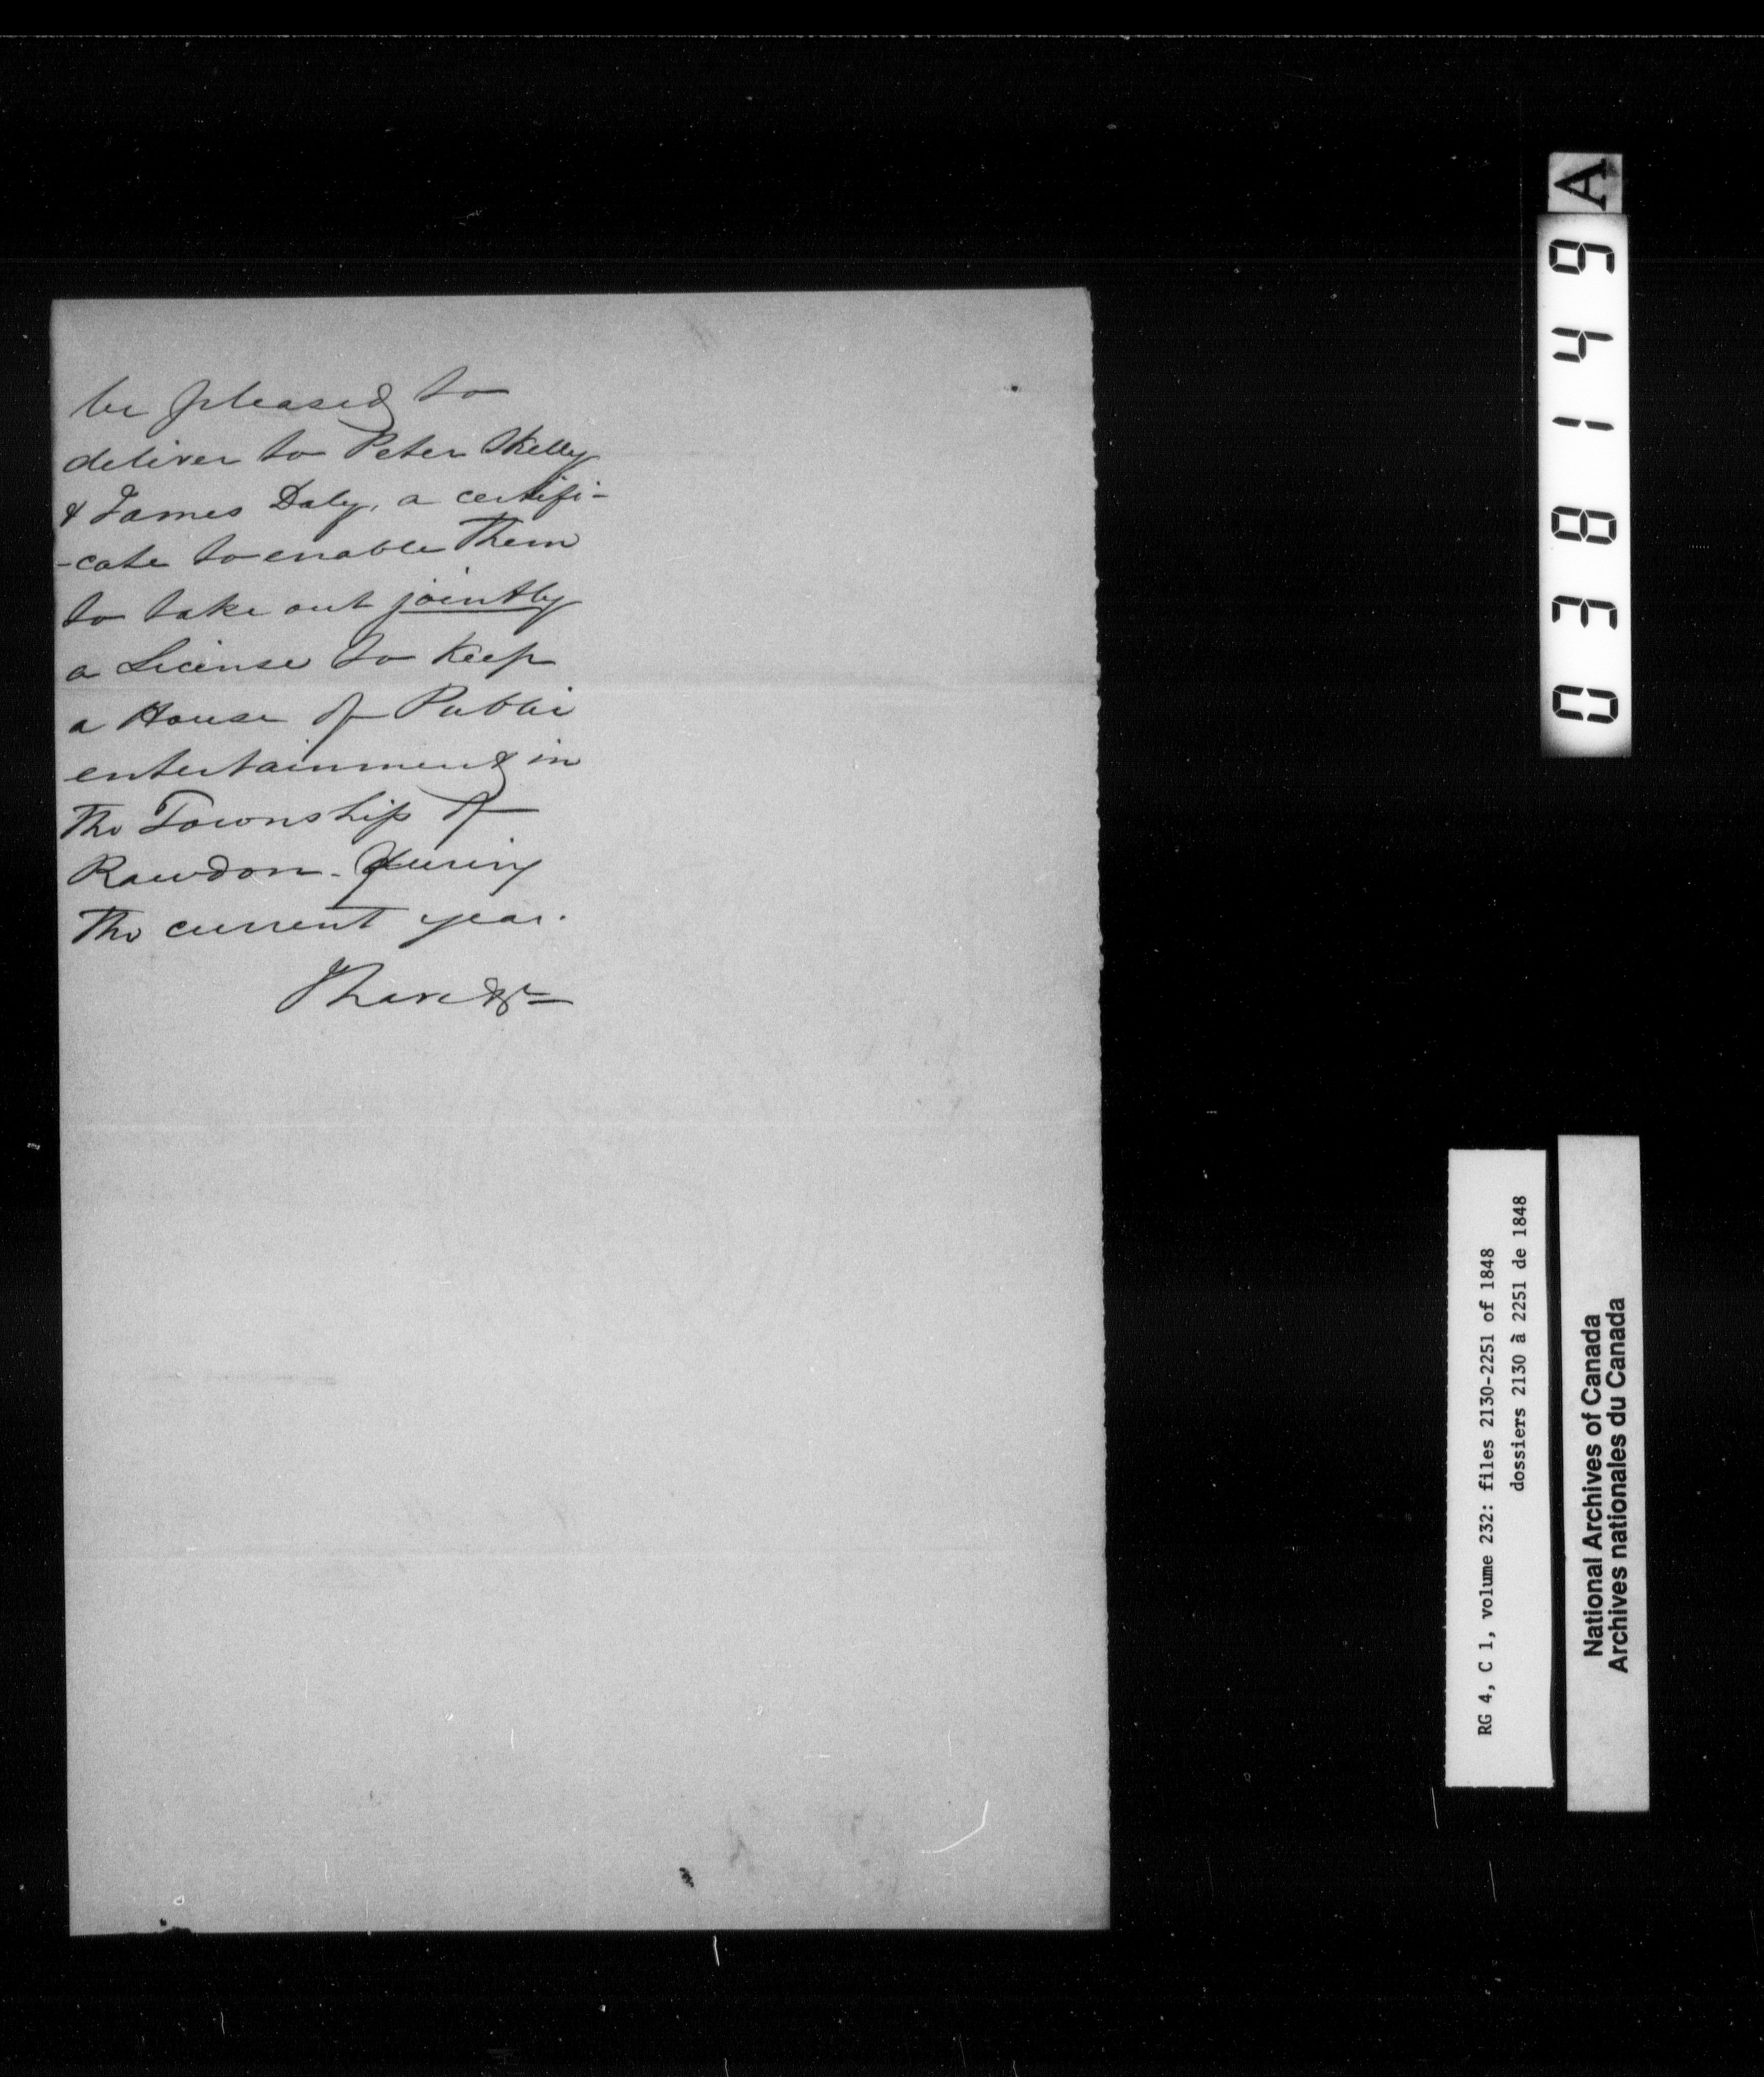 be pleased to
deliver to Peter Skelly
& James Daly, a certifi-
-cate to enable them
to take out jointly
a License to Keep
a House of Public
entertainment in
the Township of
Rawdon. during
the current year.
I have &c
A
038149
RG 4, C 1, volume 232: files 2130-2251 of 1848
dossiers 2130 à 2251 de 1848
National Archives of Canada
Archives nationales du Canada